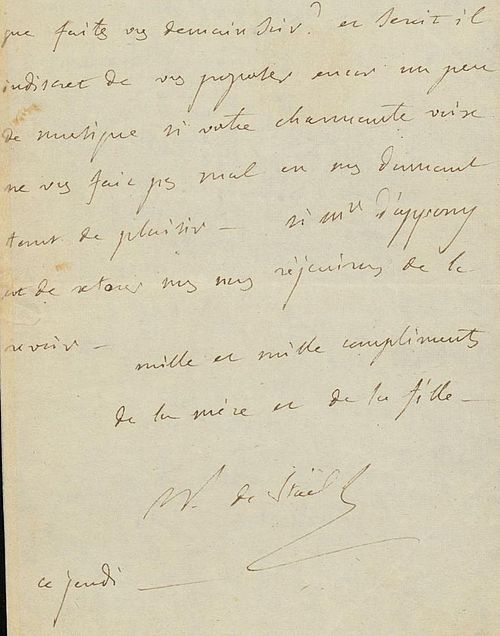 que faites vs demain soir? et serait il
indiscret de vs proposer encor un peu
de musique si votre charmante voix
ne vs fait ps mal en ns donnant
tant de plaisir — si mr d'appony
est de retour ns ns réjouirons de le
revoir —
mille et mille compliments
de la mère et de la fille —
N. de Staël
ce jeudi —